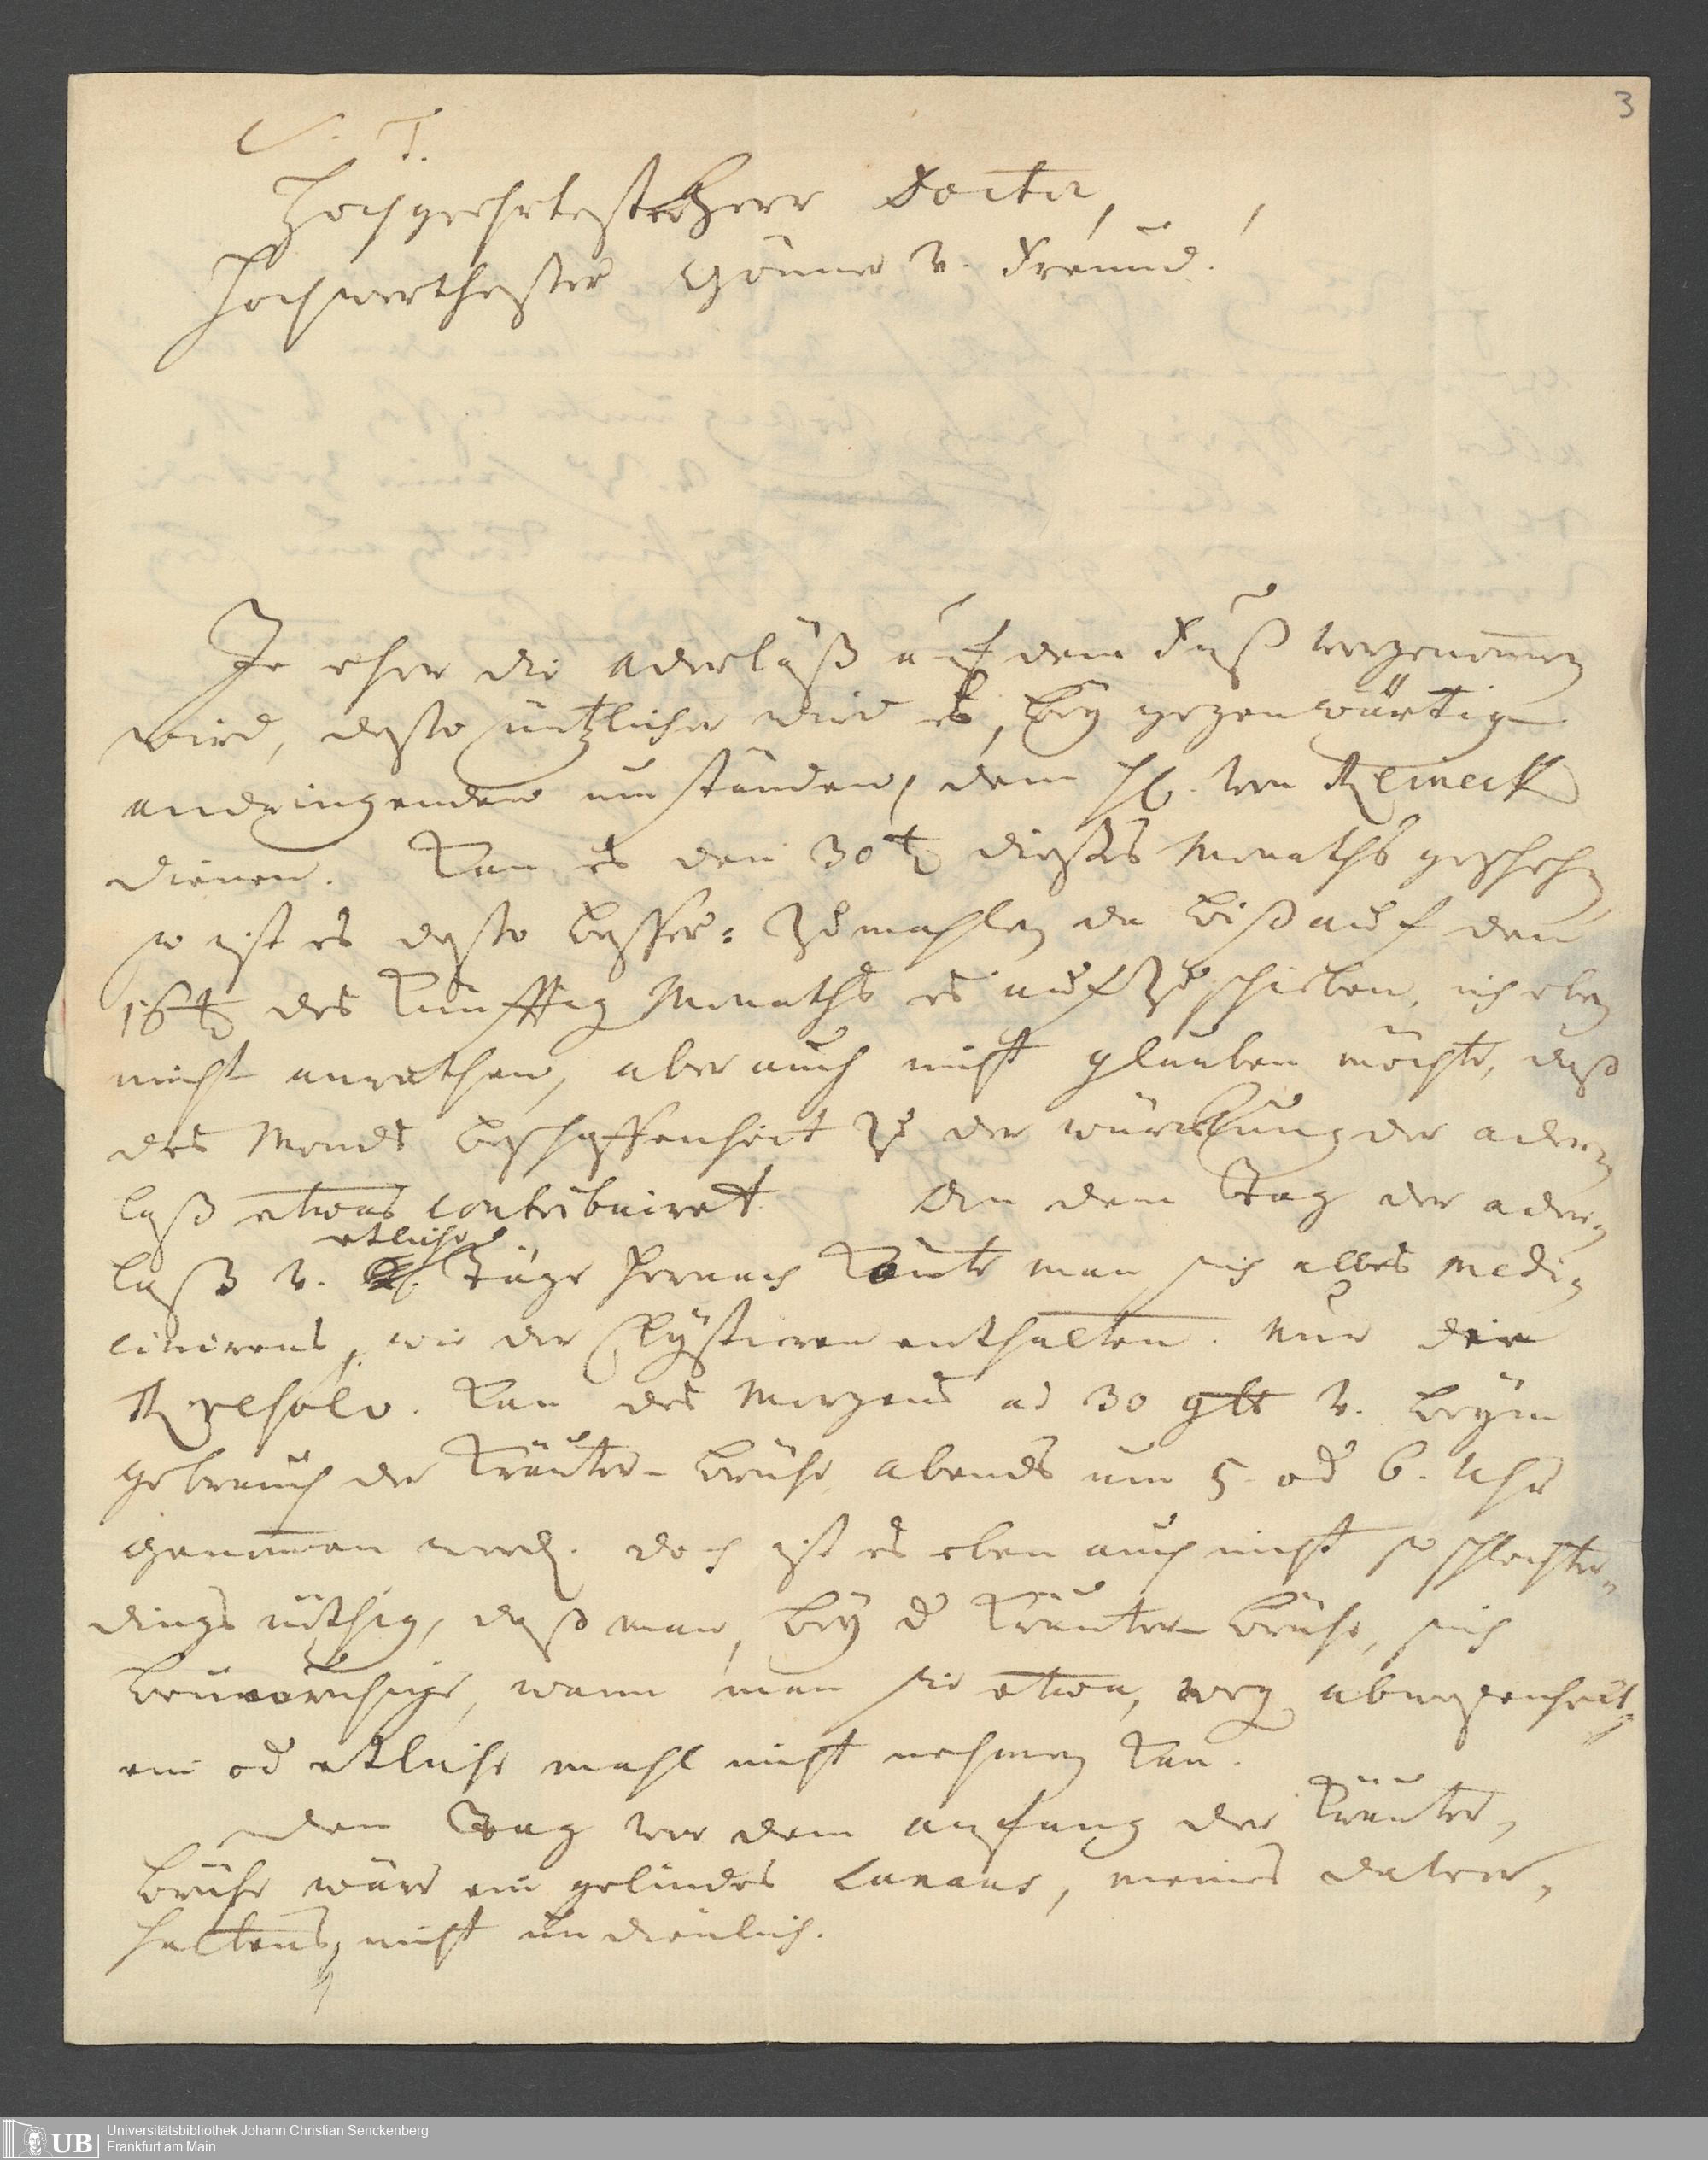 3
S. T.
Hochgeehrtester Herr Doctor,
Hochwerthester Gönner u. Freund!
Je eher die aderläß auf dem Fuß vorgenommen
wird, desto nützlicher wird es, bey gegenwärtig
andringenden umständen, dem H. von Reineck
dienen. Kan es den 30t dießes Monaths geschehen
so ist es desto besser: zumahlen da biß auf den
16t des künfftig Monaths es aufzuschieben, ich eben
nicht anrathen, aber auch nicht glauben möchte, daß
des Monds beschaffenheit zu der würckung der ader„
laß etwas contribuiret. An dem Tag der ader„
laß u. etliche Täge hernach könte man sich alles medi„
cinirens, wie der Clystieren enthalten. Nur die
resolv. kan des Morgens ad 30 gtt u. beym
gebrauch der Kräuter-brühe abends um 5 od 6. Uhr
genommen werd. doch ist es eben auch nicht so schlechter„
dings nöthig, daß man, bey d Kräuter-brühe, sich
beunruhige, wann man sie etwa, weg abwesenheit,
ein od etliche mahl nicht nehmen kan.
Den Tag vor dem anfang der Kräuter„
brühe wäre ein gelindes Laxans, meines darvor„
haltens, nicht undienlich.
UB
Universitätsbibliothek Johann Christian Senckenberg
Frankfurt am Main